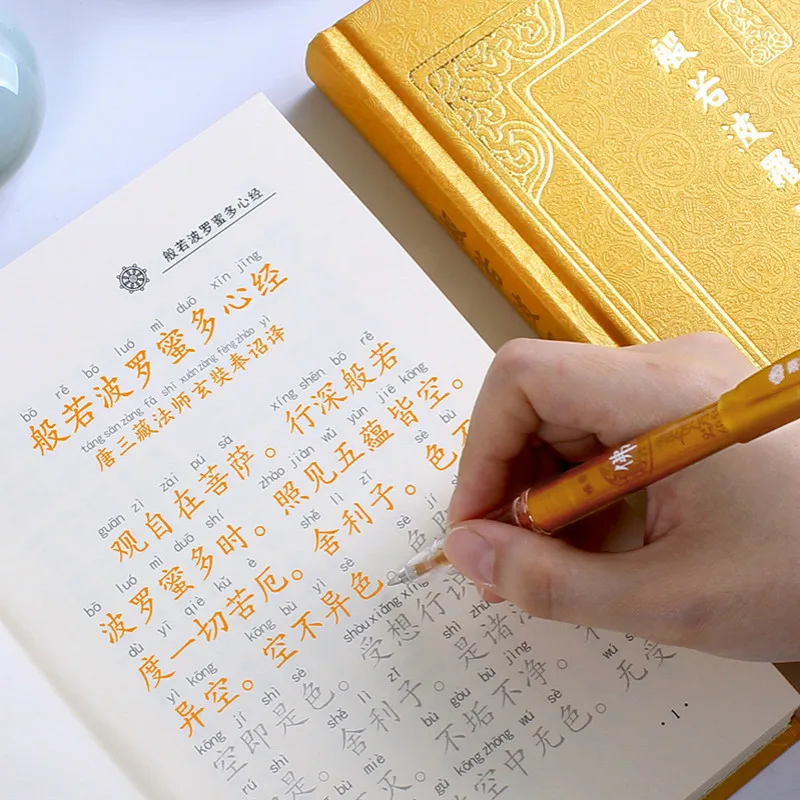 般若波罗蜜多心经
bō rě bō luó mì duō xīn jīng
般若波罗蜜多心经
táng sān zàng fǎ shī xuán zàng fèng zhào yì
唐三藏法师玄奘奉诏译
guān zì zài pú sà xíng shēn bō rě
观自在菩萨。行深般若
bō luó mì duō shí zhào jiàn wǔ yùn jiē kōng
波罗蜜多时。照见五蕴皆空。
dù yī qiè kǔ è shě lì zǐ sè bù
度一切苦厄。舍利子。色不
yì kōng kōng bù yì sè sè jí
异空。空不异色 色即
kōng jí shì sè shòu xiǎng xíng
空即是色。受想行识
shì shě lì zǐ shì zhū
是。舍利子。是诸法
bù miè bù gòu bù jìng
不灭 不垢不净。不
kōng zhōng wú sè wú shòu
空中无色。无受
·1·
般若波羅
佛